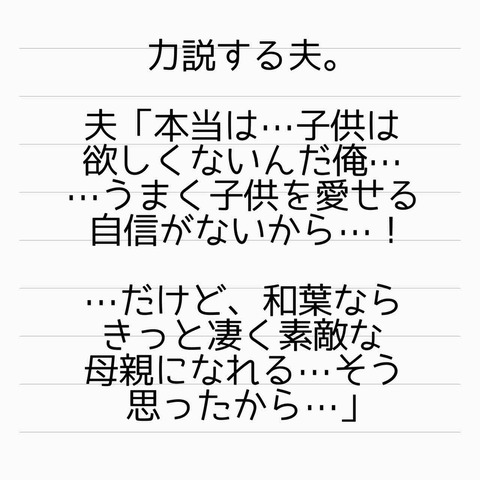 力説する夫。
夫「本当は…子供は
欲しくないんだ俺…
…うまく子供を愛せる
自信がないから…！
…だけど、和葉なら
きっと凄く素敵な
母親になれる…そう
思ったから…」